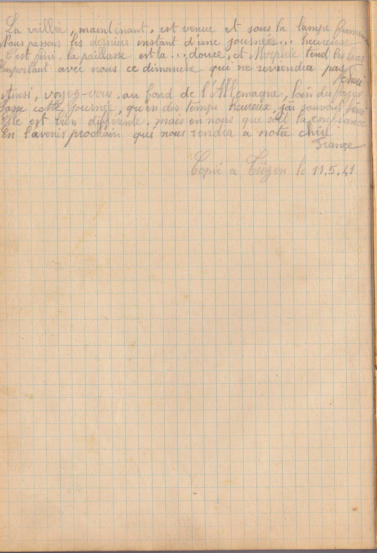 La veillée, maintenant, est venue et sous la lampe
Nous passons les derniers instant d'une journée... heureuse
C'est fini. la paillasse est là... douce, et Morphée tend les bras
Emportant avec nous ce dimanche qui ne reviendra pas
Ainsi, voyez-vous, au fond de l'Allemagne, loin du pays
Passe cette journée, qu'en des temps heureux, j'ai souvent
Elle est bien différente, mais en nous que soit la confiance
En l'avenir prochain qui nous rendra à notre chère
France
Copié à le 11.5.41